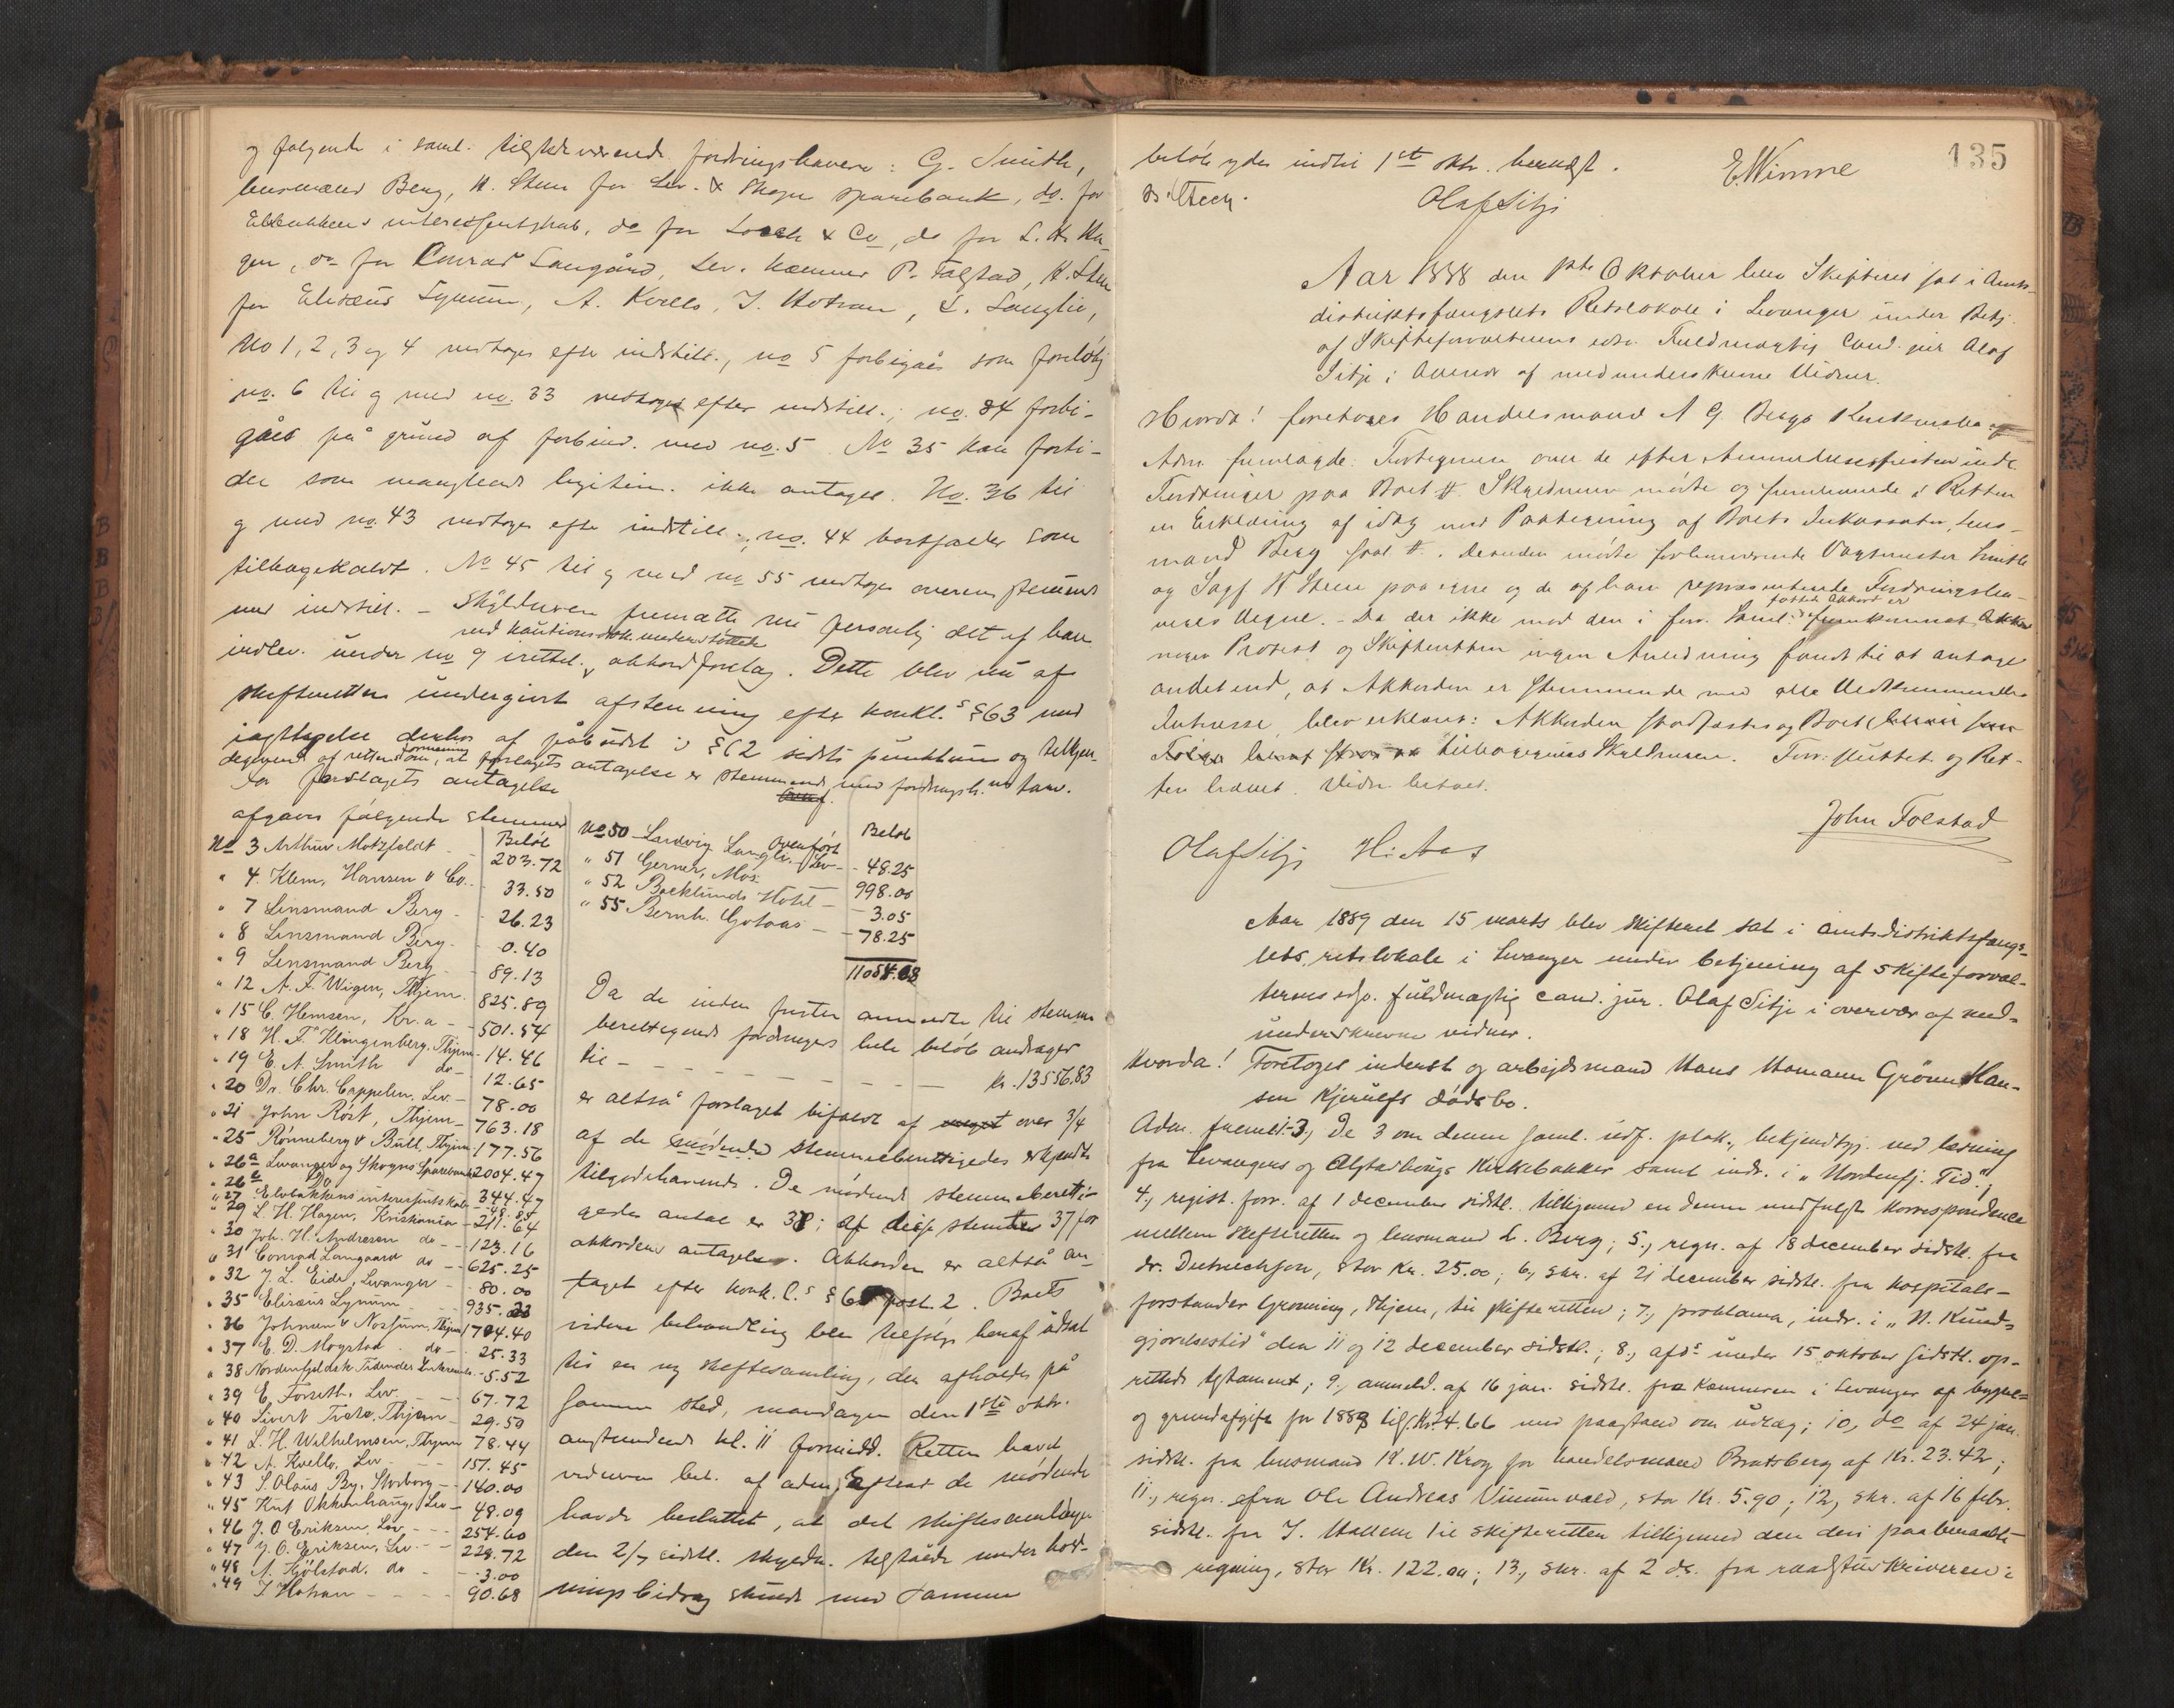 og følgende i saml. tilstedeværende fordringshavere: G. Smith,
lensmand Berg, H. Steen for Lev. & Skogn sparebank, do. for
Elvebakkens interessentskab, do for Loock & Co, do for L. H. Ha-
gen, do for Conrad Langård, Lev. kæmner P. Falstad, H. Steen
for Elisæus Lynum, A. Kvello, I. Hotran, L. Langlie,
No 1, 2, 3 og 4 vedtoges efter indstill., no 5 forbigåes som foreløbig
no. 6 til og med no. 33 vedtoges efter indstill.; no. 34 forbi-
gåes på grund af forbind. med no. 5. No 35 kan forti-
den som manglende legitim. ikke antages. No. 36 til
og med no. 43 vedtoges efter indstill., no. 44 bortfalder som
tilbagekaldt. No 45 til og med no 55 vedtoges overensstemmende
med indstill. – Skyldneren fremsatte nu personlig det af ham
med kautionsdok. understøttede
indlev. under no 9 irettel. akkordforslag. Dette blev nu af
skifteretten undergivet afstemning efter konkl.s § 63 med
iagttagelse derhos af påbudet i § 62 sidste punktum og tilkjen-
degivend af rettens formening om, at forslagets antagelse er stemmende med fordringsh. tarv.
For forslagets antagelse
afgaves følgende stemmer
Beløb
No 3 Arthur Motzfeldt - 203.72
" 4. Klem, Hansen & Co. - 33.50
" 7 Lensmand Berg - 26.23
" 8 Lensmand Berg - 0.40
" 9 Lensmand Berg - 89.13
" 12 A. F. Wigen, Thjem. 825.89
" 15 C. Hemsen, Kr.a - 501.54
" 18 H. F. Klingenberg, Thjem - 14.46
" 19 E. A. Smith do - 12.65
" 20 Dr. Chr. Cappelen, Lev. - 78.00
" 21 John Røst, Thjem - 763.18
" 25 Rønneberg & Bull, Thjem 177.56
" 26a Levanger og Skogns Sparebank 2004.47
" 26b Do 344.47
" 27 Elvebakkens interessentskab - 48.85
" 29 L. H. Hagen, Kristiania - 211.64
" 30 Joh. H. Andresen do - 123.16
" 31 Conrad Langaard do - 625.25
" 32 J. L. Eide, Levanger - 80.00
" 35 Elisæus Lynum - 935.23
" 36 Johnsen & Nosfum, Thjem 1704.40
" 37 E. D. Mogstad do - 25.33
" 38 Nordenfjeldsk Tidendes - 5.52
" 39 E. Forseth, Lev. - 67.72
" 40 Sivert Trætø, Thjem - 29.50
" 41 L. H. Wilhelmsen, Thjem 78.44
" 42 A. Kvello, Lev - 157.45
" 43 S. Olaus By, Storborg - 140.00
" 45 Knt Okkenhaug, Lev - 48.09
" 46 J. O. Eriksen, Lev. - 254.60
" 47 J. O. Eriksen, Lev. - 228.72
" 48 A. Hjølstad, do - 3.00
" 49 I Hotran - 90.68
Beløb
Overført
No 50 Ludvig Langlie, Lev - 48.25
" 51 Gerner, Mos. 998.00
" 52 Backlunds Hotel - 3.05
" 55 Bernh. Gotaas - 78.25
11054.08
Da de inden fristen anmeldte til stemme
berettigende fordringers hele beløb andrager
til - - - - kr. 13556.83
er altså forslaget bifaldt af over 3/4
af de mødende stemmeberettigedes erkjendte
tilgodehavende. De mødende stemmeberetti-
gedes antal er 38; af disse stemte 37 for
akkordens antagelse. Akkorden er altså an-
taget efter konk. l.s § 65 post. 2. Boets
videre behandling blev tilfølge heraf udsat
til en ny skiftesamling, der afholdes på
samme sted, mandagen den 1ste oktr.
anstundende kl. 11 formidd. Retten hævet
vidnerne bet. af adm. Efterat de mødende
havde besluttet, at det skiftesamlingen
den 2/7 sidstl. skyldn. tilståede underhold-
ningsbidrag skulde med samme
135
beløb ydes indtil 1ste oktr. hævet.
E. Wimme
H. Steen.
Olaf Sitje
Aar 1888 den 1ste Oktober blev Skifteret sat i Amts-
distriktsfængslets Retslokale i Levanger under Betj.
af Skifteforvalterens edsv. Fuldmægtig Cand. jur Olaf
Sitje i Overvær af medunderskrevne Vidner.
Hvorda! foretoges Handelsmand A G Bergs Konkursbo
Adm. fremlagde: Fortegnelse over de efter Anmeldelsesfristen indk.
Fordringer paa Boet #. Skyldneren mødte og fremlevede i Retten
en Erklæring af idag med Paategning af Boets Inkassator, Lens-
mand Berg saal. #. Desuden mødte forhenværende Vagtmester Smith
og Sagf H Steen paa egne og de af ham repræsenterede Fordringsha-
veres Vegne. – Da der ikke mod den i forr. Saml. fremkomne Akkord
fattede Akkord er
nogen Protest og Skifteretten ingen Anledning fandt til at antage
andet end, at Akkorden er stemmende med alle Vedkommendes
Interesse, blev erklæret: Akkorden stadfæstes og Boet
tilbagegives Skyldneren. Forr. sluttet og Ret-
ten hævet. Vidn. betalt.
John Tolstad
Olaf Sitje H. Aas
Aar 1889 den 15 marts blev skifteret sat i amtsdistriktsfæng-
slets retslokale i Levanger under betjening af skifteforval-
terens edsv. fuldmægtig cand. jur. Olaf Sitje i overvær af med-
underskrevne vidner.
Hvorda! Foretoges inderst og arbejdsmand Hans Hamann Grönn Han-
sen Kjerulfs dödsbo.
Adm. fremel. 1-3, de 3 om denne saml. udf. plak., bekjendtgj. ved læsning
fra Levangers og Alstadhougs Kirkebakker samt indr. i „Nordenfj. Tid.";
4., regist. forr. af 1 december sidstl. tilligemed en denne medfulgt korrespondence
mellem skifteretten og lensmand L. Berg; 5., regn. af 18 december sidstl. fra
dr. Dietrichson, stor Kr. 25.00; 6, skr. af 21 december sidstl. fra hospitals-
forstander Grønning, Thjem, til skifteretten; 7., proklama, indr. i „N. Kund-
gjørelsestid" den 11 og 12 december sidstl.; 8., afd.s under 15 oktober sidstl. op-
rettede testament; 9., anmeld. af 16 jan. sidstl. fra Kæmneren i Levanger af bygsel-
og grundafgift for 1888 til Kr. 24.66 med paastand om udlæg; 10, do af 24 jan.
sidstl. fra lensmand K. W. Krog for handelsmand Bratsberg af Kr. 23.42;
11., regn. fra Ole Andreas Vinumvald, stor Kr. 5.90; 12, skr. af 16 febr.
sidstl. fra I. Hallem til skifteretten tilligemed den deri paaberaabte
regning, stor Kr. 122.00; 13., skr. af 2 ds. fra raadstuskriveren i